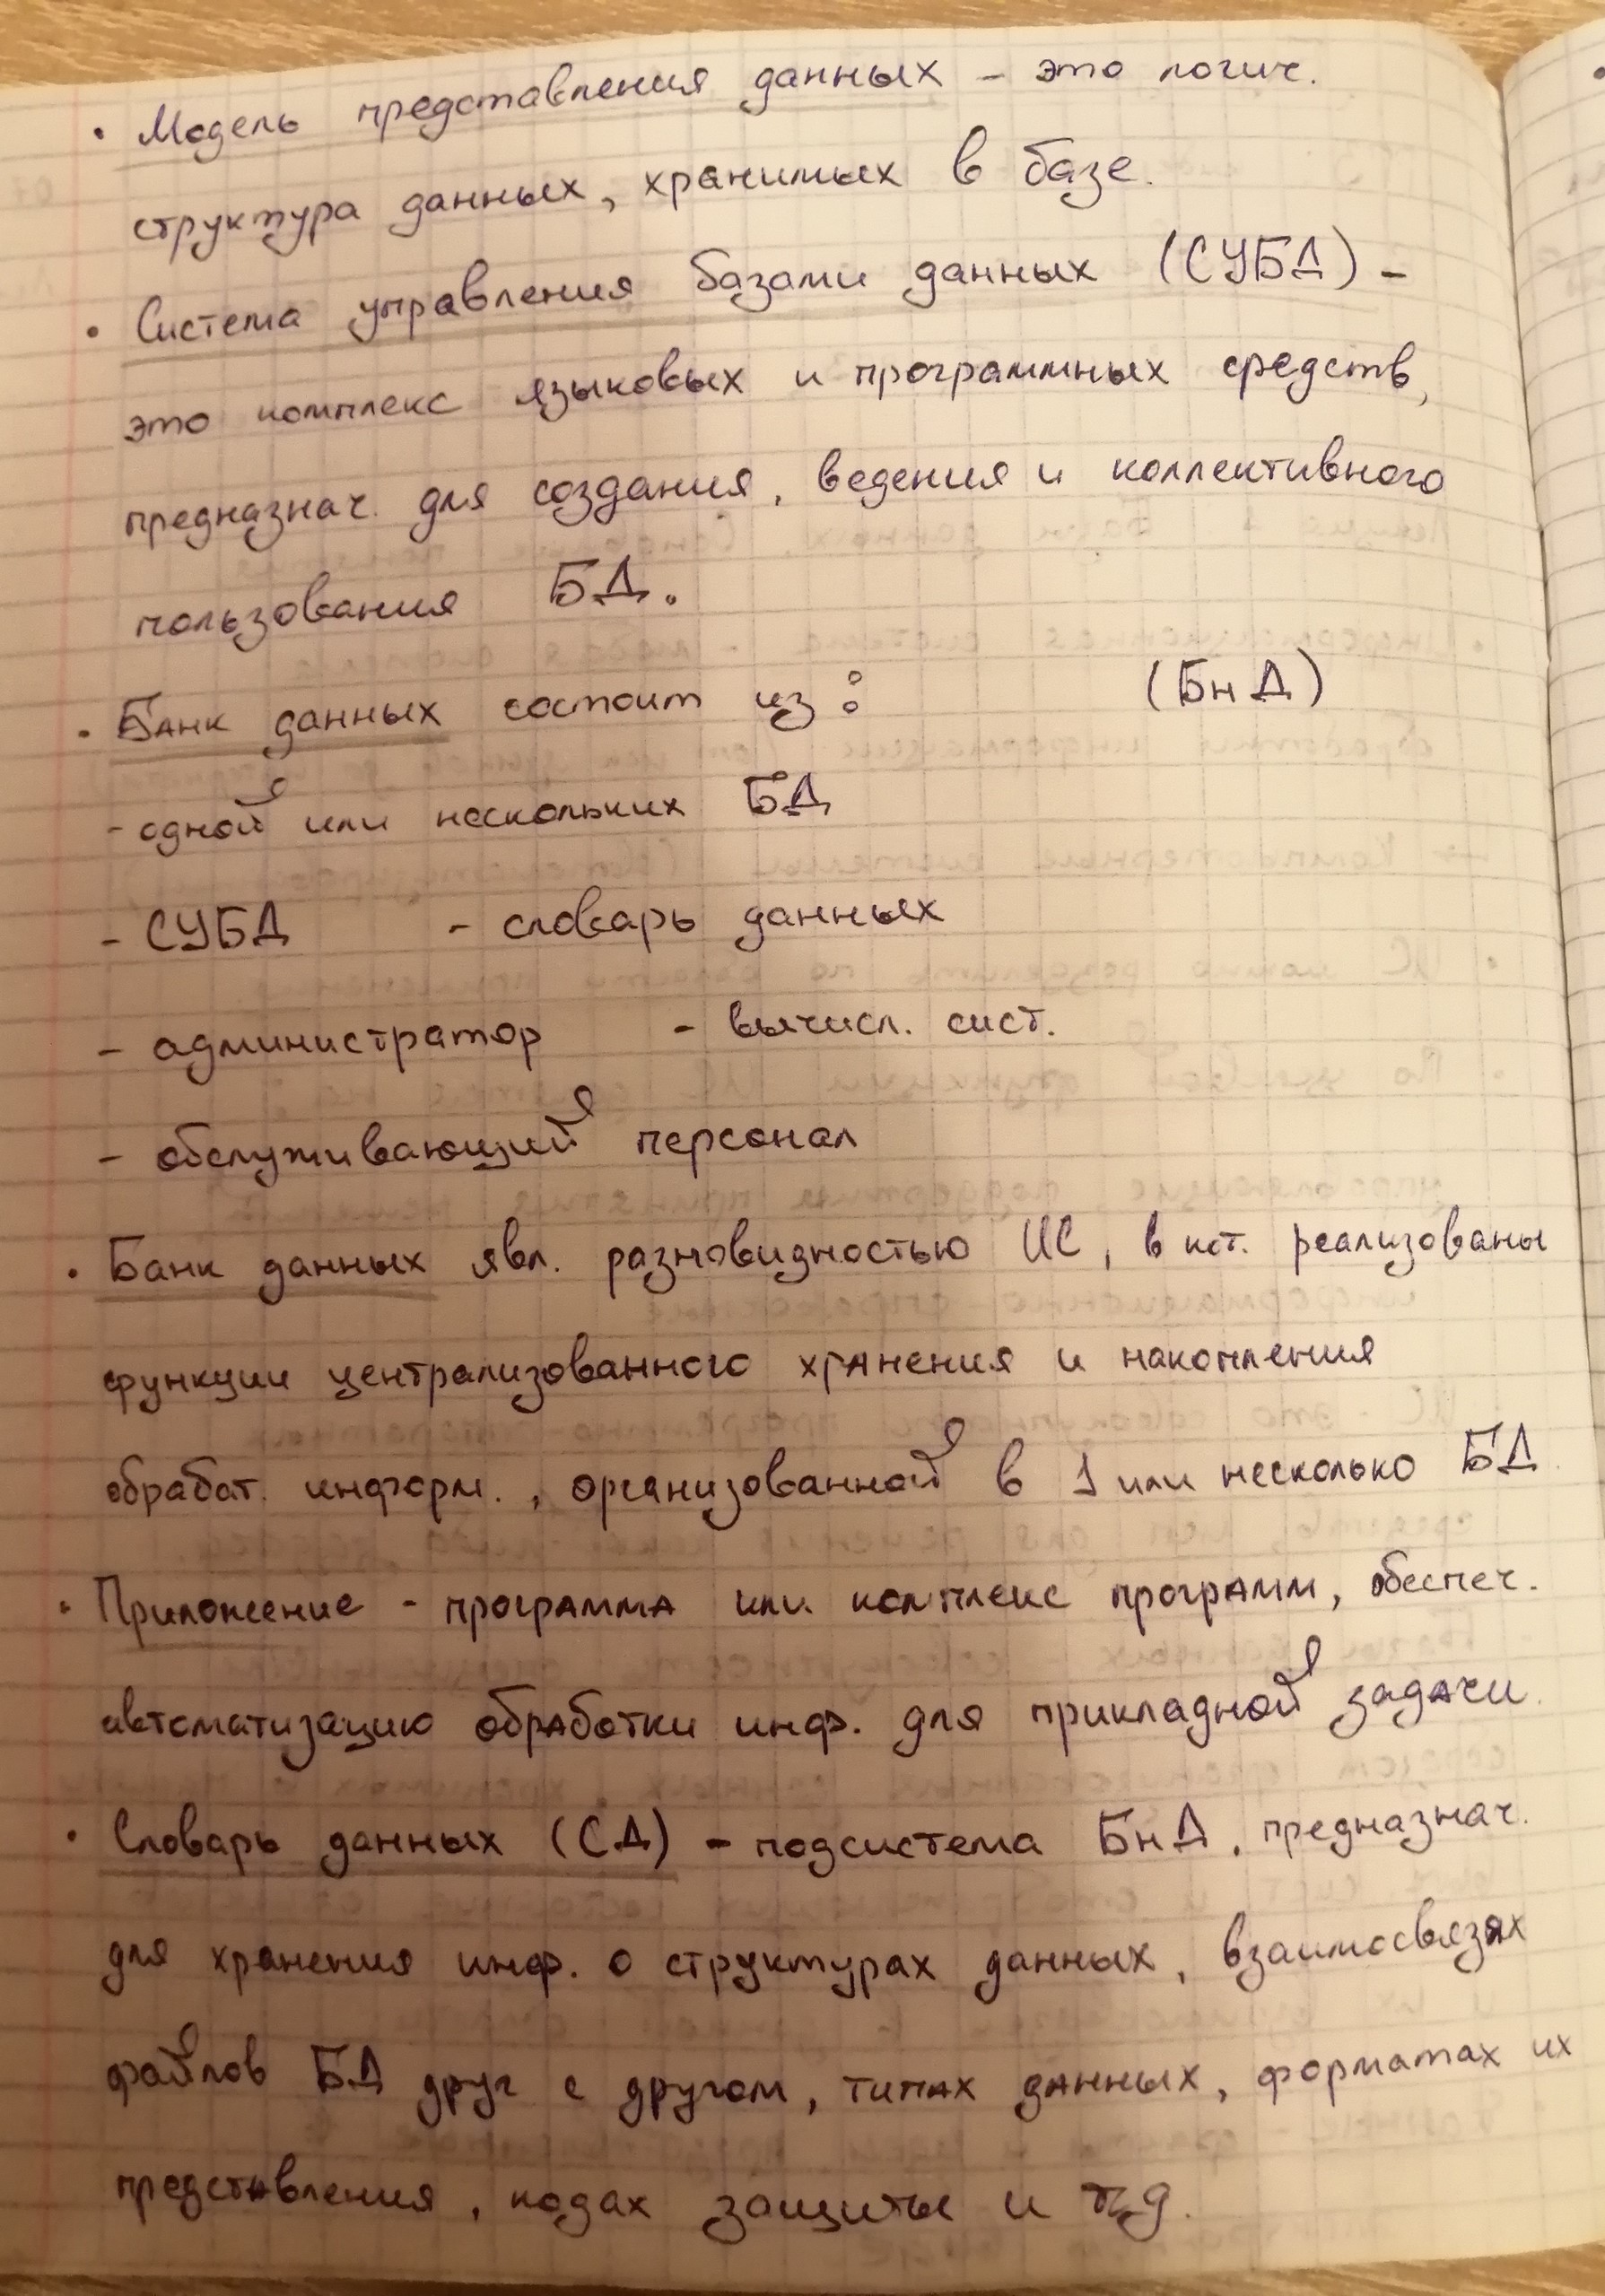 • Модель представления данных - это логич.
структура данных, хранимых в базе.
• Система управления базами данных (СУБД) -
это комплекс языковых и программных средств,
предназнач. для создания, ведения и коллективного
пользования БД.
• Банк данных состоит из: (БнД)
- одной или нескольких БД
- СУБД - словарь данных
- администратор - вычисл. сист.
- обслуживающий персонал
• Банк данных явл. разновидностью ИС, в кот. реализованы
функции централизованного хранения и накопления
обработ. информ., организованной в 1 или несколько БД
• Приложение - программа или комплекс программ, обеспеч.
автоматизацию обработки инф. для прикладной задачи.
• Словарь данных (СД) - подсистема БнД, предназнач.
для хранения инф. о структурах данных, взаимосвязях
файлов БД друг с другом, типах данных, форматах их
представления, кодах защиты и тд.